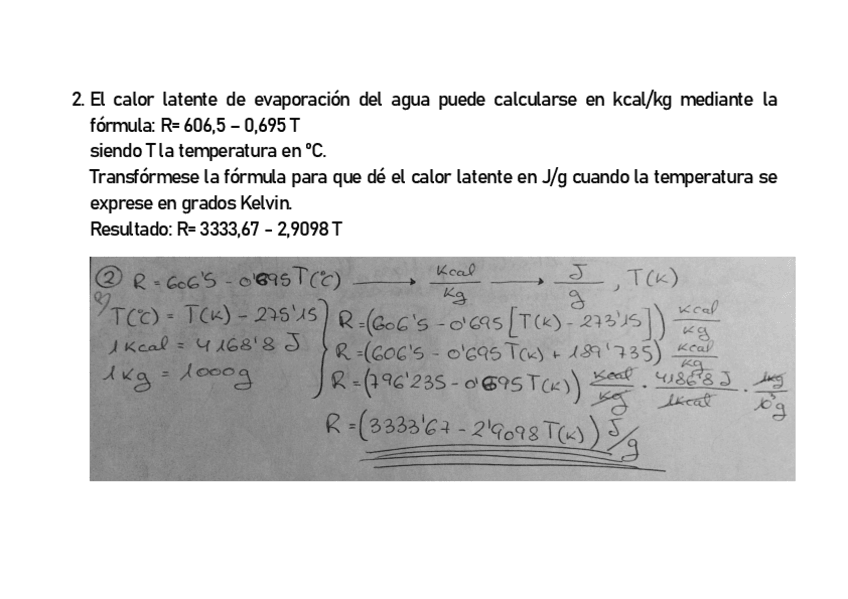 2. El calor latente de evaporación del agua puede calcularse en kcal/kg mediante la
fórmula: R= 606,5 – 0,695 T
siendo T la temperatura en °C.
Transfórmese la fórmula para que dé el calor latente en J/g cuando la temperatura se
exprese en grados Kelvin.
Resultado: R= 3333,67 - 2,9098 T
② R = 606'5 - 0'695 T(°C) → Kcal/Kg → J/g , T(K)
T(°C) = T(K) - 275'15
1 Kcal = 4168'8 J
1 Kg = 1000g
R = (606'5 - 0'695 [T(K) - 273'15]) Kcal/Kg
R = (606'5 - 0'695 T(K) + 189'735) Kcal/Kg
R = (796'235 - 0'695 T(K)) Kcal/Kg · 4186'8 J/1Kcal · 1Kg/10³g
R = (3333'67 - 2'9098 T(K)) J/g